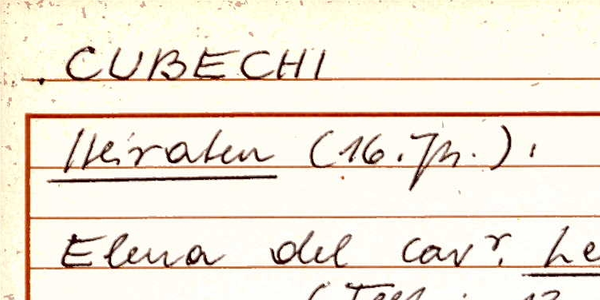 . CUBECHI
Heiraten (16. Jh.).
Elena del cav.r Le